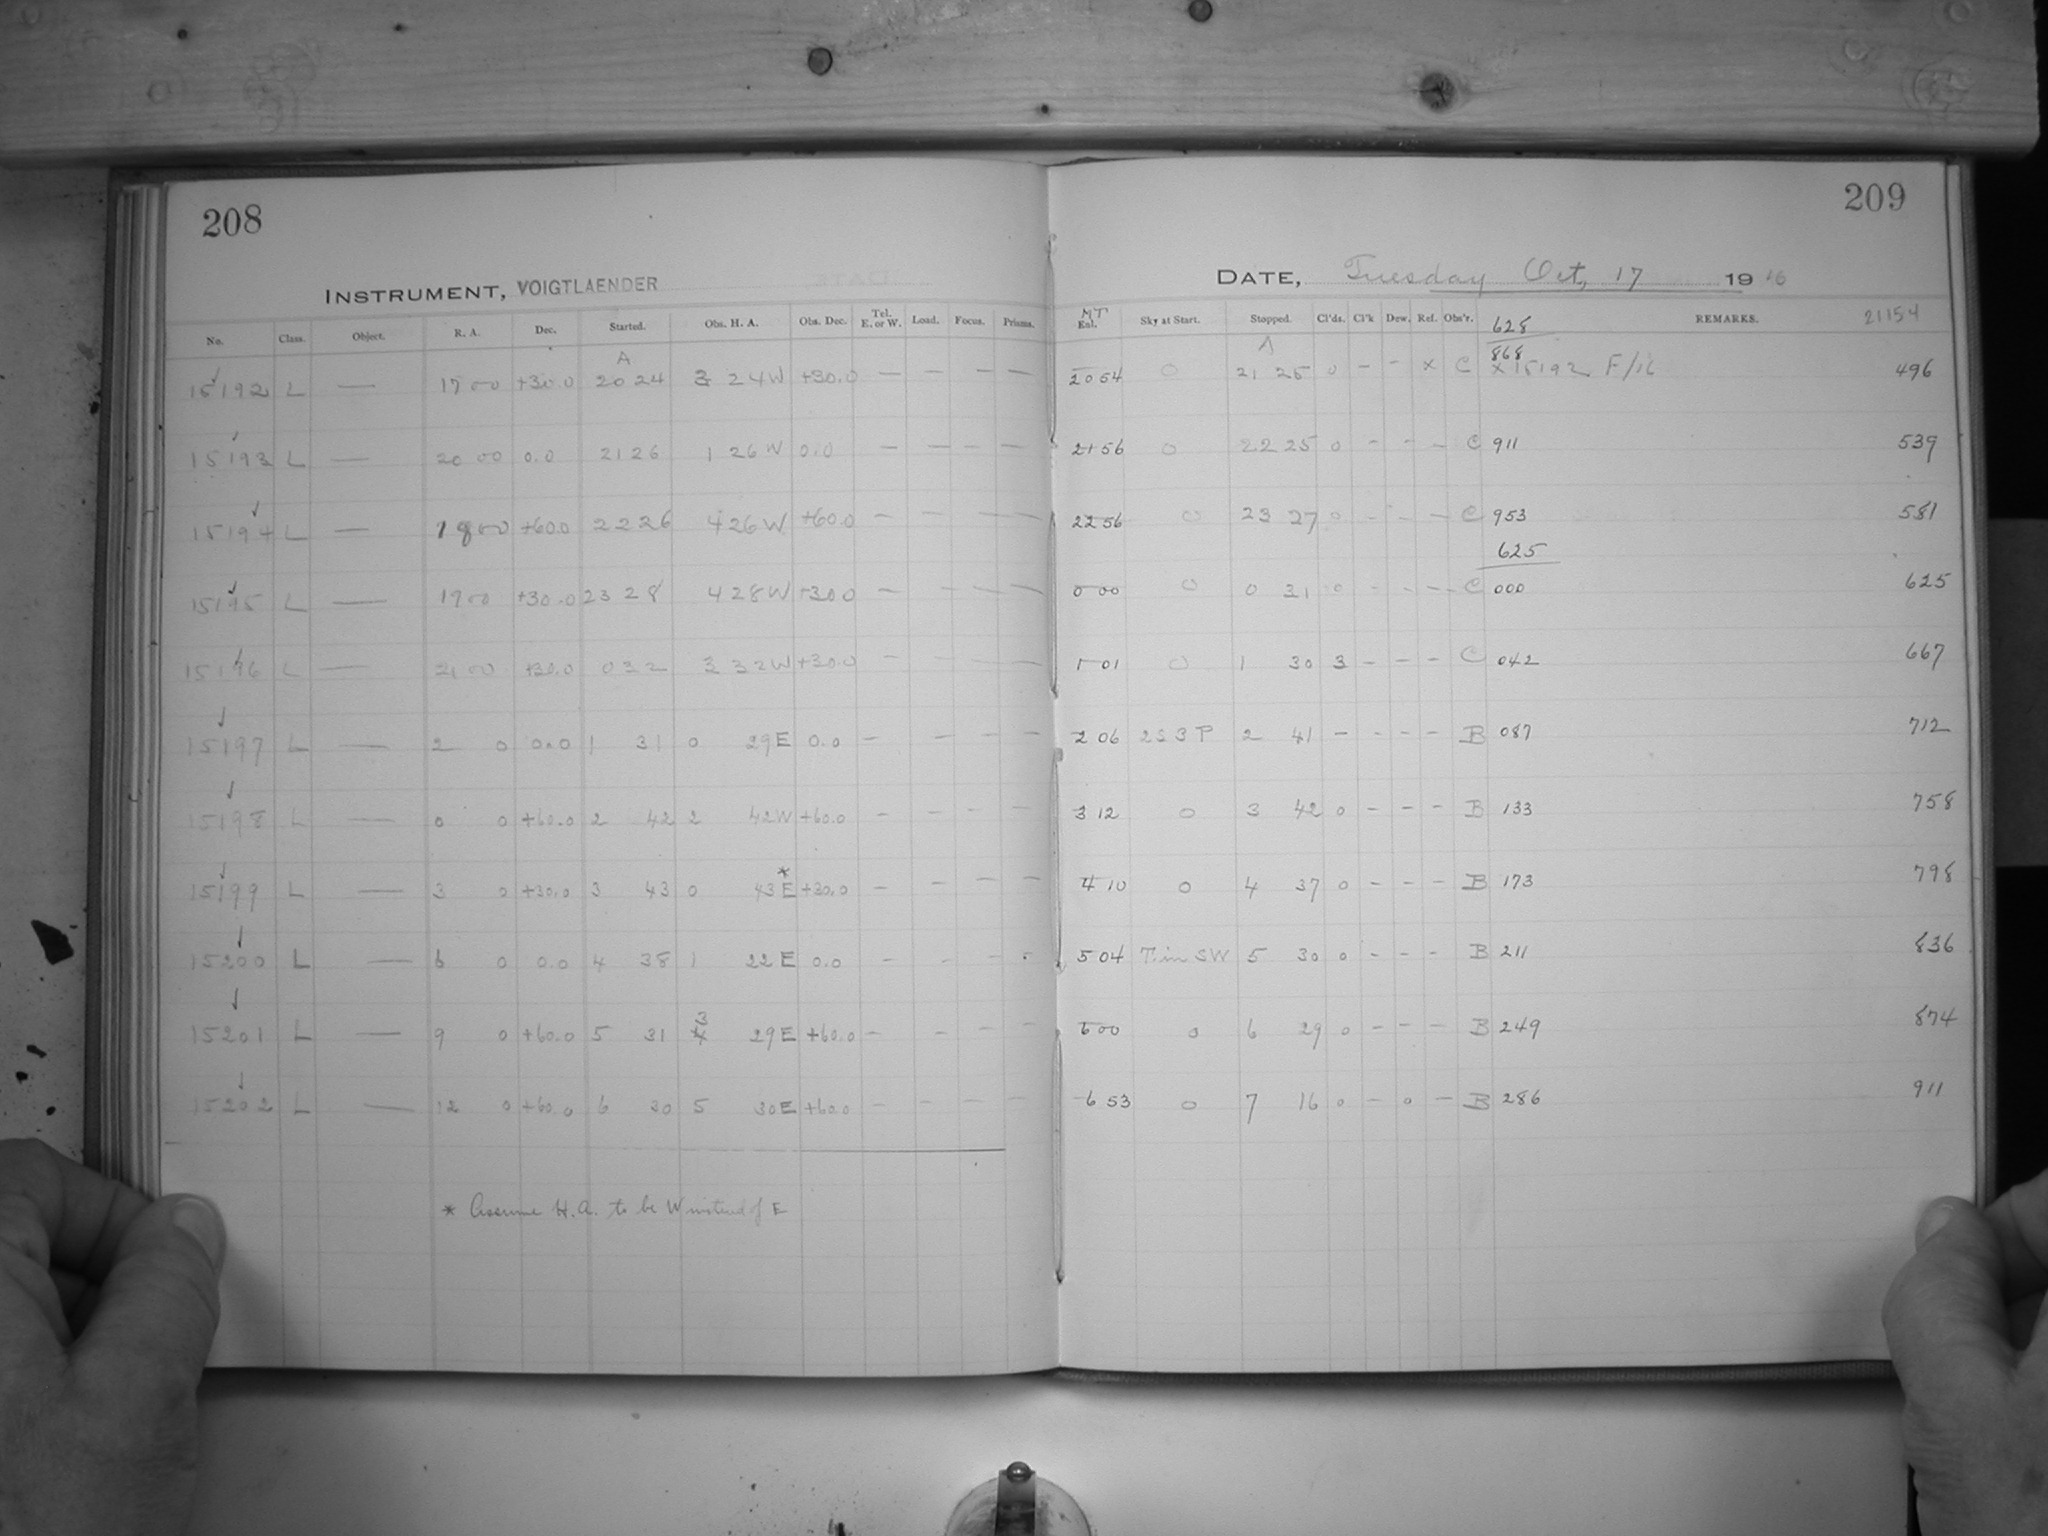 208
INSTRUMENT, VOIGTLAENDER
No. Class. Object. R. A. Dec. Started. Obs. H. A. Obs. Dec. Tel. E. or W. Load. Focus. Prisms.
A
15192 L — 17 00 +30.0 20 24 3 24 W +30.0 — — — —
15193 L — 20 00 0.0 21 26 1 26 W 0.0 — — — —
15194 L — 18 00 +60.0 22 26 4 26 W +60.0 — — — —
15195 L — 19 00 +30.0 23 28 4 28 W +30.0 — — — —
15196 L — 21 00 +30.0 0 32 3 32 W +30.0 — — — —
15197 L — 2 0 0.0 1 31 0 29 E 0.0 — — — —
15198 L — 0 0 +60.0 2 42 2 42 W +60.0 — — — —
15199 L — 3 0 +30.0 3 43 0 43 E* +30.0 — — — —
15200 L — 6 0 0.0 4 38 1 22 E 0.0 - - - -
15201 L — 9 0 +60.0 5 31 3 29 E +60.0 — — — —
15202 L — 12 0 +60.0 6 30 5 30 E +60.0 — — — —
* Assume H.A. to be W instead of E
209
DATE, Tuesday Oct, 17 1916
MT
Ext. Sky at Start. Stopped. Cl'ds. Cl'k Dew. Ref. Obs'r. 628 REMARKS. 21154
A
20 54 0 21 25 0 - - x C 868 x 15192 F/16 496
21 56 0 22 25 0 - - - C 911 539
22 56 0 23 27 0 - - - C 953 581
625
0 00 0 0 31 0 - - - C 000 625
1 01 0 1 30 3 - - - C 042 667
2 06 2S3P 2 41 - - - - B 087 712
3 12 0 3 42 0 - - - B 133 758
4 10 0 4 37 0 - - - B 173 798
5 04 T. in SW 5 30 0 - - - B 211 836
6 00 0 6 29 0 - - - B 249 874
6 53 0 7 16 0 - 0 - B 286 911